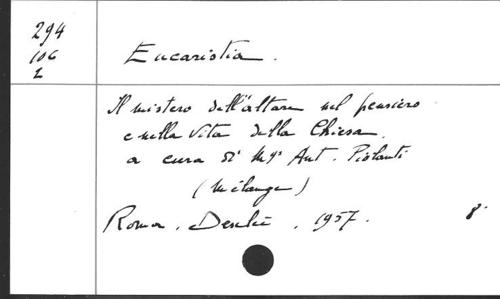 294
106
2
Eucaristia.
Il mistero dell'altare nel pensiero
e nella Vita della Chiesa.
a cura di Mgr Ant. Piolanti
(Mélange)
Roma, Desclée, 1957. 8°